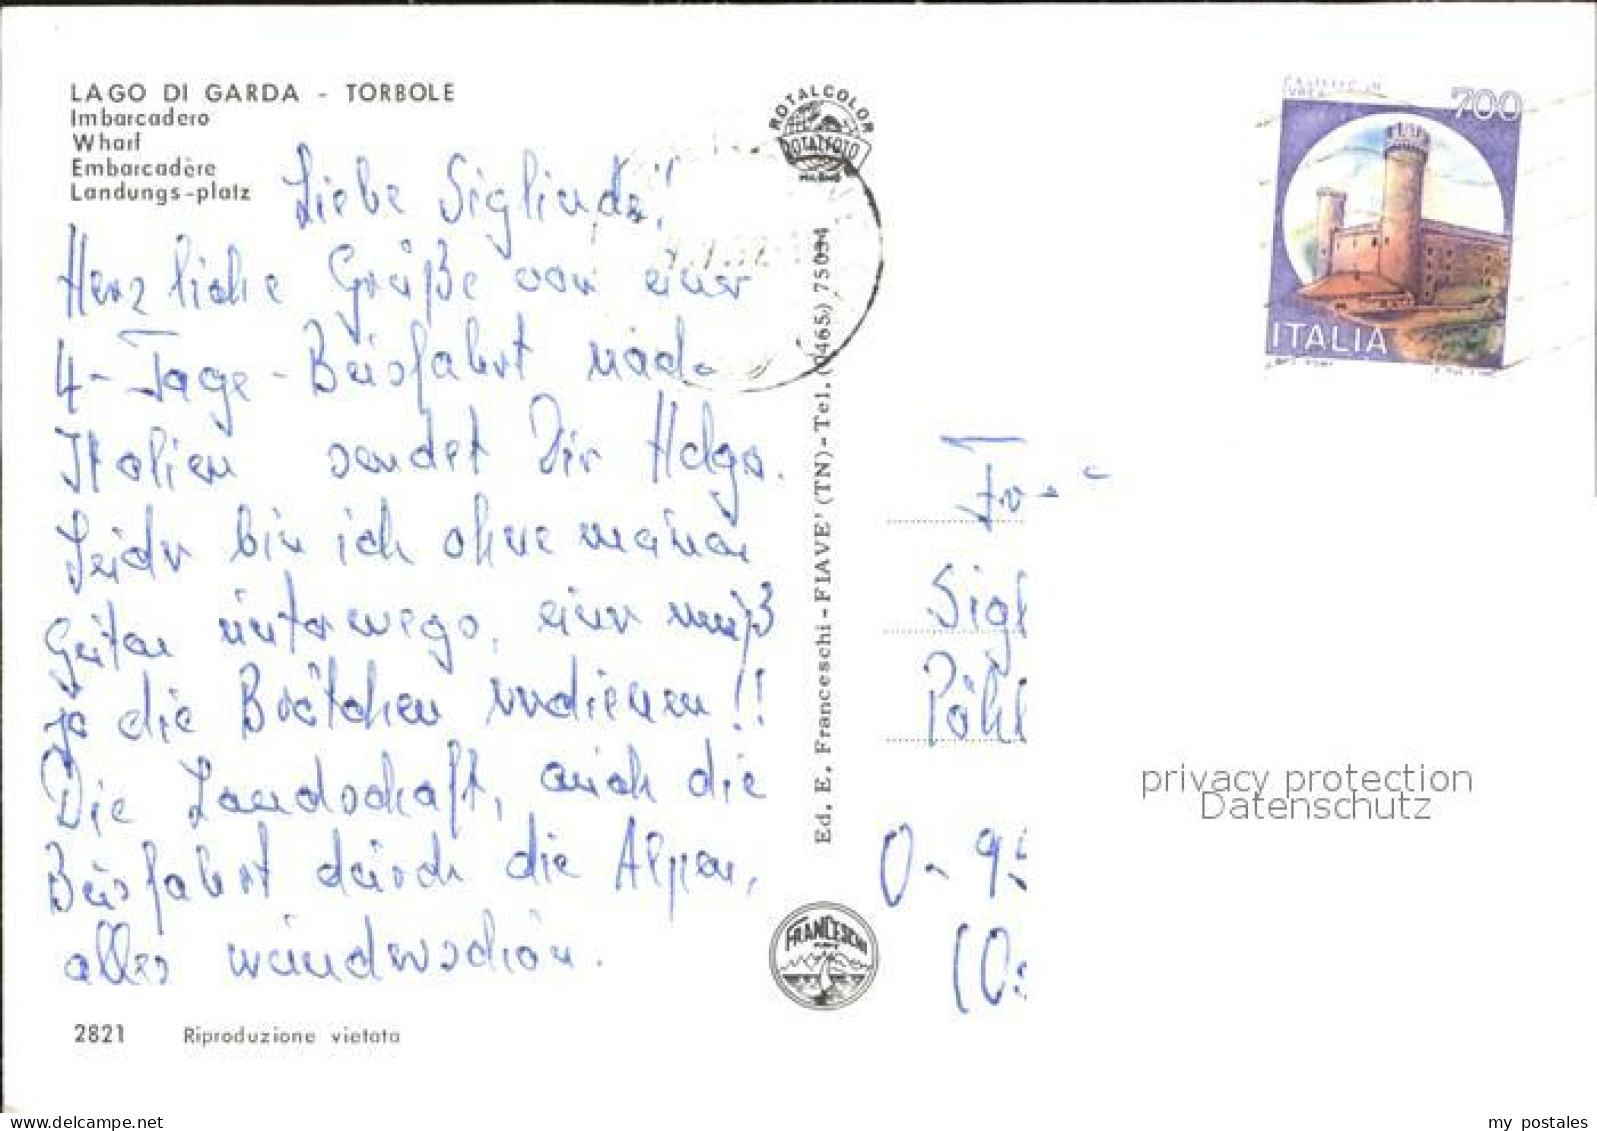 LAGO DI GARDA - TORBOLE
Imbarcadero
Wharf
Embarcadère
Landungs-platz
ROTALCOLOR
ROTALFOTO
MILANO
700
ITALIA
Liebe Siglinde!
Herzliche Grüße von einer
4-Tage-Busfahrt nach
Italien sendet Dir Helga.
Leider bin ich ohne meinen
unterwegs, einer muß
ja die Brötchen verdienen!!
Die Landschaft, auch die
Busfahrt durch die Alpen,
alles wunderschön.
Ed. E. Franceschi - FIAVE' (TN) - Tel. (0465) 75034
FRANCESCHI
Sigl
Pöhl
privacy protection
Datenschutz
2821 Riproduzione vietata
delcampe.net
my postales